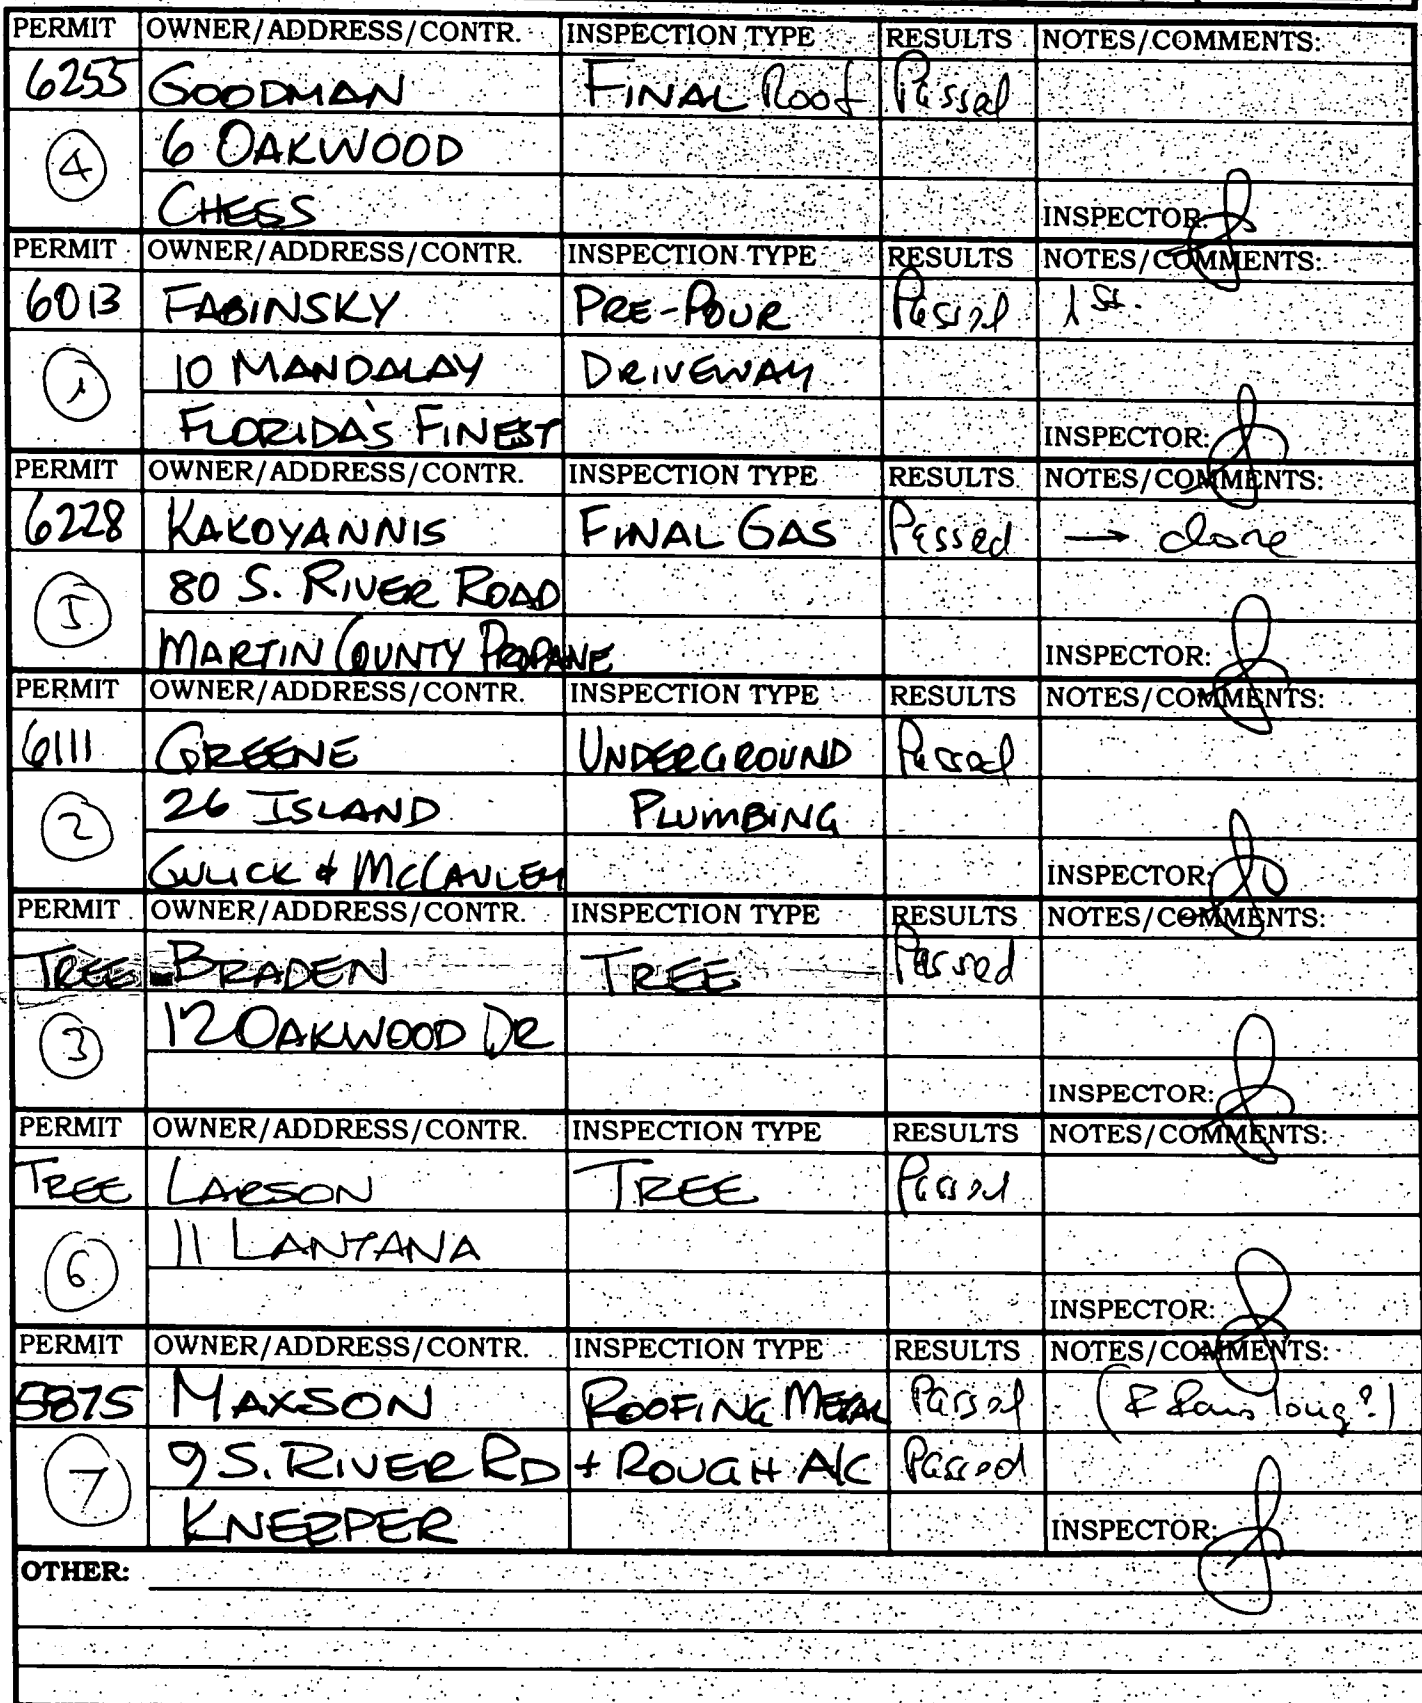 PERMIT OWNER/ADDRESS/CONTR. INSPECTION TYPE RESULTS NOTES/COMMENTS:
6255 GOODMAN FINAL Roof Passed
4 6 OAKWOOD
CHESS INSPECTOR:
PERMIT OWNER/ADDRESS/CONTR. INSPECTION TYPE RESULTS NOTES/COMMENTS:
6013 FABINSKY PRE-POUR Passed 1st.
1 10 MANDALAY DRIVEWAY
FLORIDA'S FINEST INSPECTOR:
PERMIT OWNER/ADDRESS/CONTR. INSPECTION TYPE RESULTS NOTES/COMMENTS:
6228 KAKOYANNIS FINAL GAS Passed →
5 80 S. RIVER ROAD
MARTIN COUNTY PROPANE INSPECTOR:
PERMIT OWNER/ADDRESS/CONTR. INSPECTION TYPE RESULTS NOTES/COMMENTS:
6111 GREENE UNDERGROUND Passed
2 26 ISLAND PLUMBING
GULICK & MCCAULEY INSPECTOR:
PERMIT OWNER/ADDRESS/CONTR. INSPECTION TYPE RESULTS NOTES/COMMENTS:
TREE BRADEN TREE Passed
3 12 OAKWOOD DR
INSPECTOR:
PERMIT OWNER/ADDRESS/CONTR. INSPECTION TYPE RESULTS NOTES/COMMENTS:
TREE LARSON TREE Passed
6 11 LANTANA
INSPECTOR:
PERMIT OWNER/ADDRESS/CONTR. INSPECTION TYPE RESULTS NOTES/COMMENTS:
5875 MAXSON ROOFING METAL Passed
7 9 S. RIVER RD + ROUGH A/C Passed
KNEEPER INSPECTOR:
OTHER: